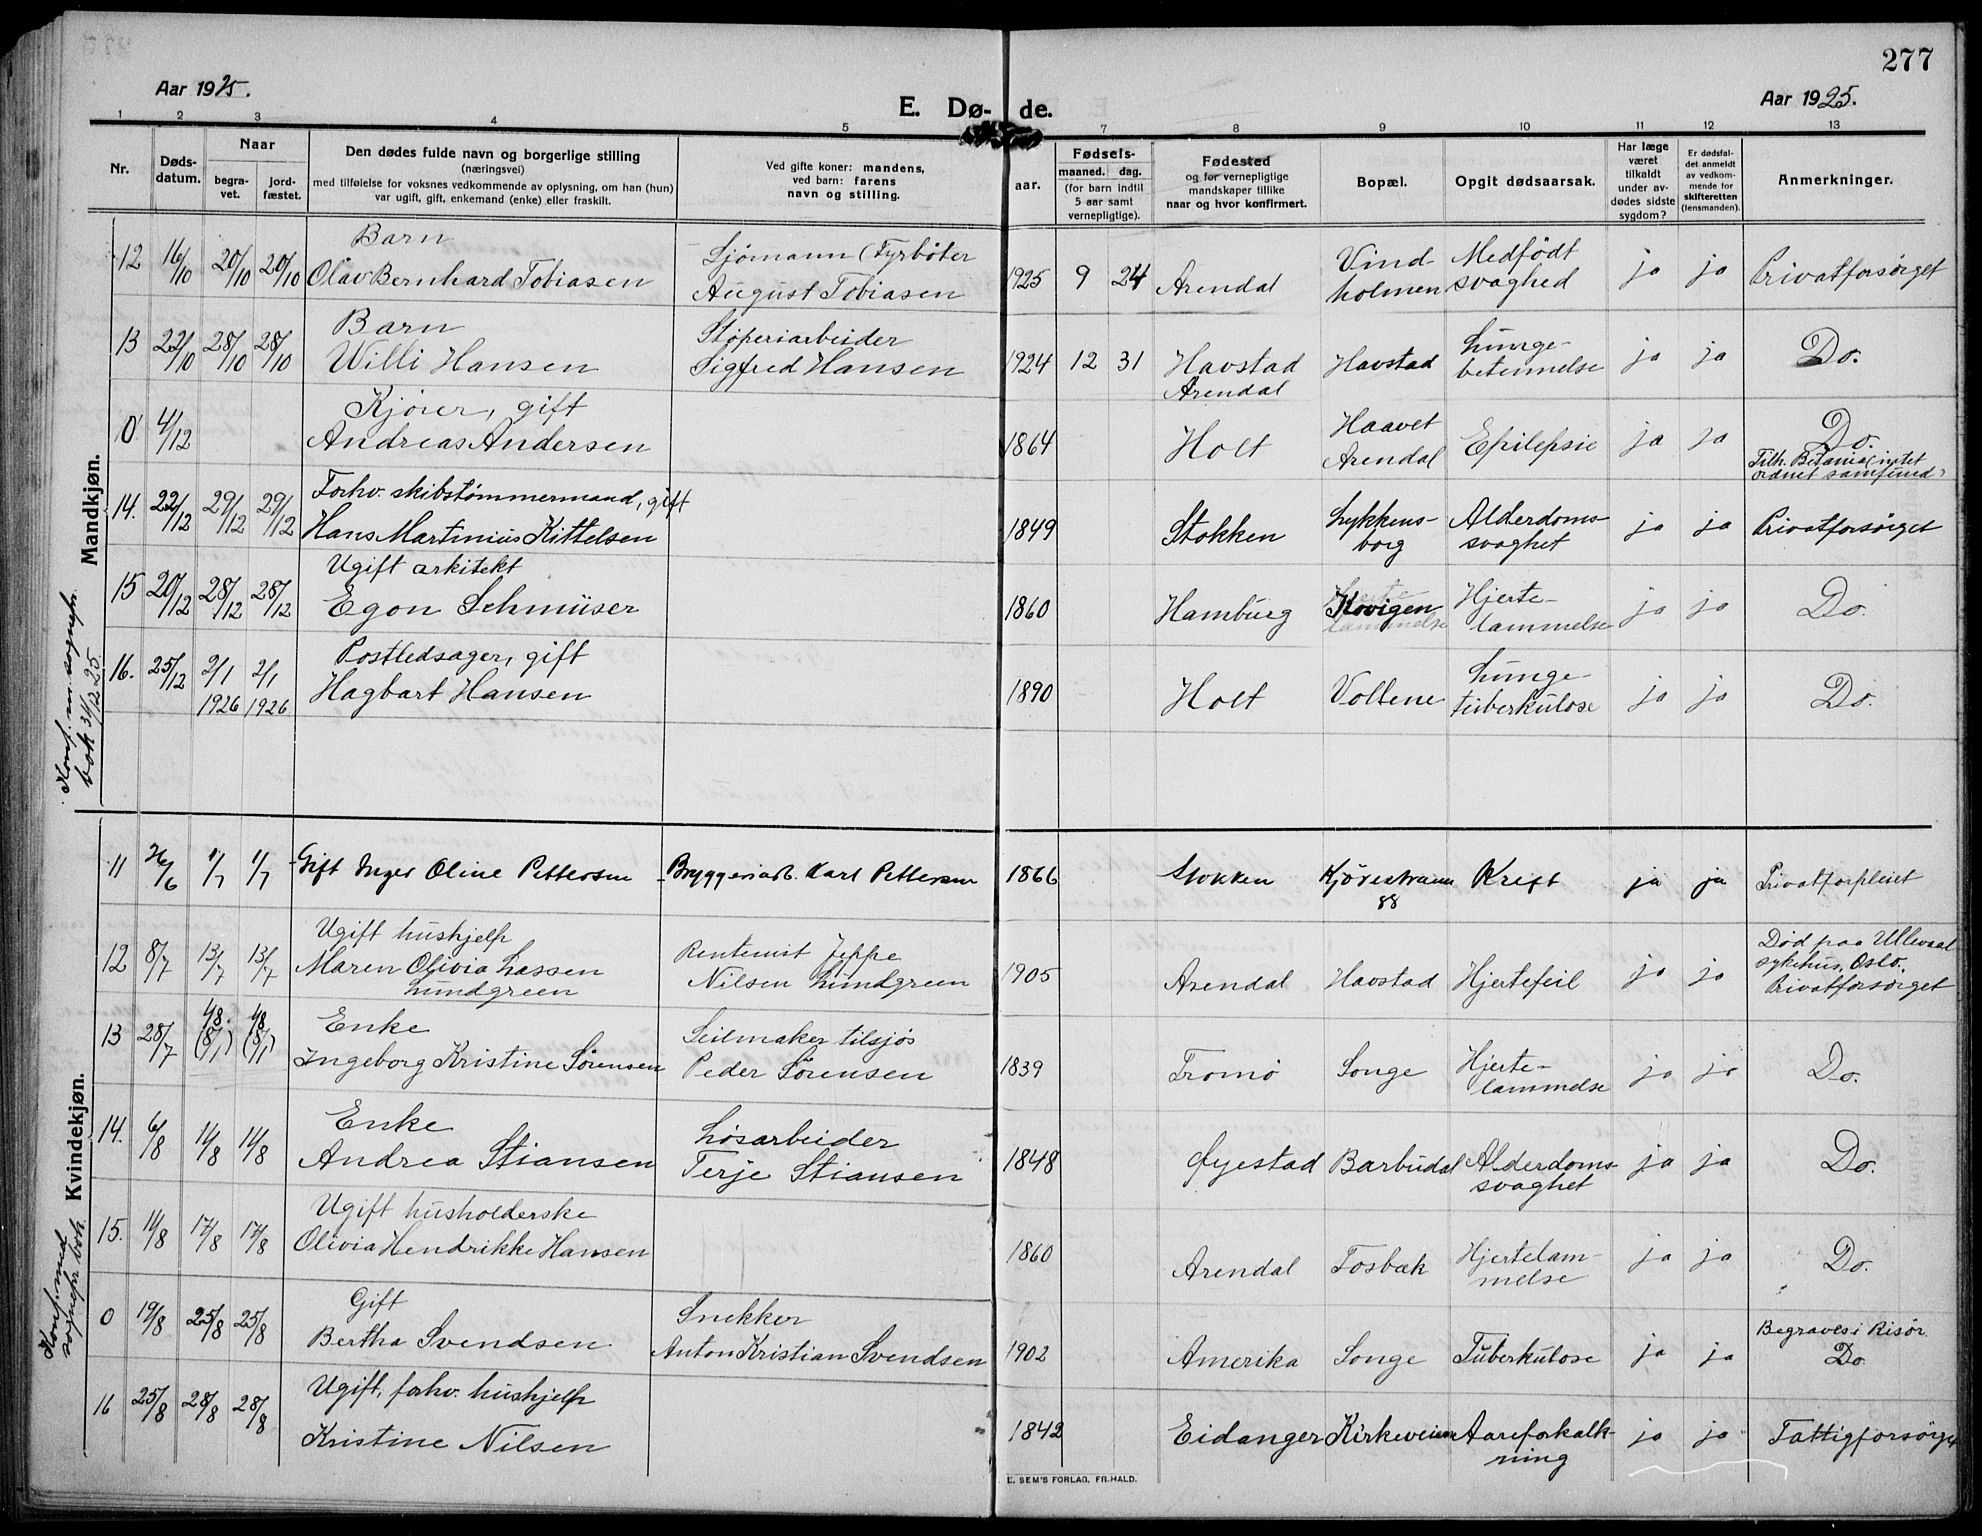 277
Aar 1925.
E. Dø- de.
Aar 1925.
1 2 3 4 5 7 8 9 10 11 12 13
Nr.
Døds-
datum.
Naar
begra-
vet.
jord-
fæstet.
Den dødes fulde navn og borgerlige stilling
(næringsvei)
med tilføielse for voksnes vedkommende av oplysning, om han (hun)
var ugift, gift, enkemand (enke) eller fraskilt.
Ved gifte koner: mandens,
ved barn: farens
navn og stilling.
aar.
Fødsels-
maaned. dag.
(for barn indtil
5 aar samt
vernepligtige).
Fødested
og for vernepligtige
mandskaper tillike
naar og hvor konfirmert.
Bopæl.
Opgit dødsaarsak.
Har læge
været
tilkaldt
under av-
dødes sidste
sygdom?
Er dødsfal-
det anmeldt
av vedkom-
mende for
skifteretten
(lensmanden).
Anmerkninger.
Mandkjøn.
Konf. m. sognepr.
bok 31/12 25.
12 16/10 20/10 20/10
Barn
Olav Bernhard Tobiasen
Sjømann (Fyrbøter
August Tobiasen
1925 9 24 Arendal
Vind
holmen
Medfødt
svaghed
ja ja Privatforsørget
13 22/10 28/10 28/10
Barn
Willi Hansen
Støperiarbeider
Sigfred Hansen
1924 12 31 Havstad
Arendal
Havstad
Lunge-
betennelse
ja ja Do.
0 4/12
Kjører, gift
Andreas Andersen
1864 Holt
Haavet
Arendal
Epilepsie
ja ja Do.
Tilh. Betania (intet
ordnet samfund)
14. 22/12 29/12 29/12
Forhv. skibstømmermand, gift
Hans Martinius Kittelsen
1849 Stokken
Lykkens-
borg
Alderdoms-
svaghet
ja ja Privatforsørget
15 20/12 28/12 28/12
Ugift arkitekt
Egon Schmüser
1860 Hamburg
Kovigen
Hjerte-
lammelse
ja ja Do.
16. 25/12 2/1 2/1
1926 1926
Postledsager, gift
Hagbart Hansen
1890 Holt Voltene
Lunge-
tuberkulose
ja ja Do.
Kvindekjøn.
Konf. med
sognepr. bok.
11 26/6 1/7 1/7
Gift Inger Oline Pettersen
Bryggeriarb. Karl Pettersen
1866 Stokken
Kjørestraum
88
Kreft ja ja Privatforpleiet
12 8/7 13/7 13/7
Ugift hushjelp
Maren Olivia Lassen
Lundgreen
Rentenist Jeppe
Nilsen Lundgreen
1905 Arendal Havstad Hjertefeil ja ja
Død paa Ullevaal
sykehus, Oslo.
Privatforsørget
13 28/7 4/8. 4/8
Enke
Ingeborg Kristine Sørensen
Seilmaker tilsjøs
Peder Sørensen
1839 Tromø Songe
Hjerte-
lammelse
ja ja Do.
14. 6/8 11/8 11/8
Enke
Andrea Stiansen
Løsarbeider
Terje Stiansen
1848 Øyestad Barbudal
Alderdoms-
svaghet
ja ja Do.
15. 11/8 17/8 17/8
Ugift husholderske
Olivia Hendrikke Hansen
1860 Arendal Fosbæk
Hjertelam-
melse
ja ja Do.
0 19/8 25/8 25/8
Gift
Bertha Svendsen
Snekker
Anton Kristian Svendsen
1902 Amerika Songe Tuberkulose ja ja
Begraves i Risør.
Do.
16 25/8 28/8 28/8
Ugift, forhv. hushjelp
Kristine Nilsen
1842 Eidanger Kirkeveien
Aareforkalk-
ning
ja ja Fattigforsørget
E. SEM'S FORLAG, FR.HALD.